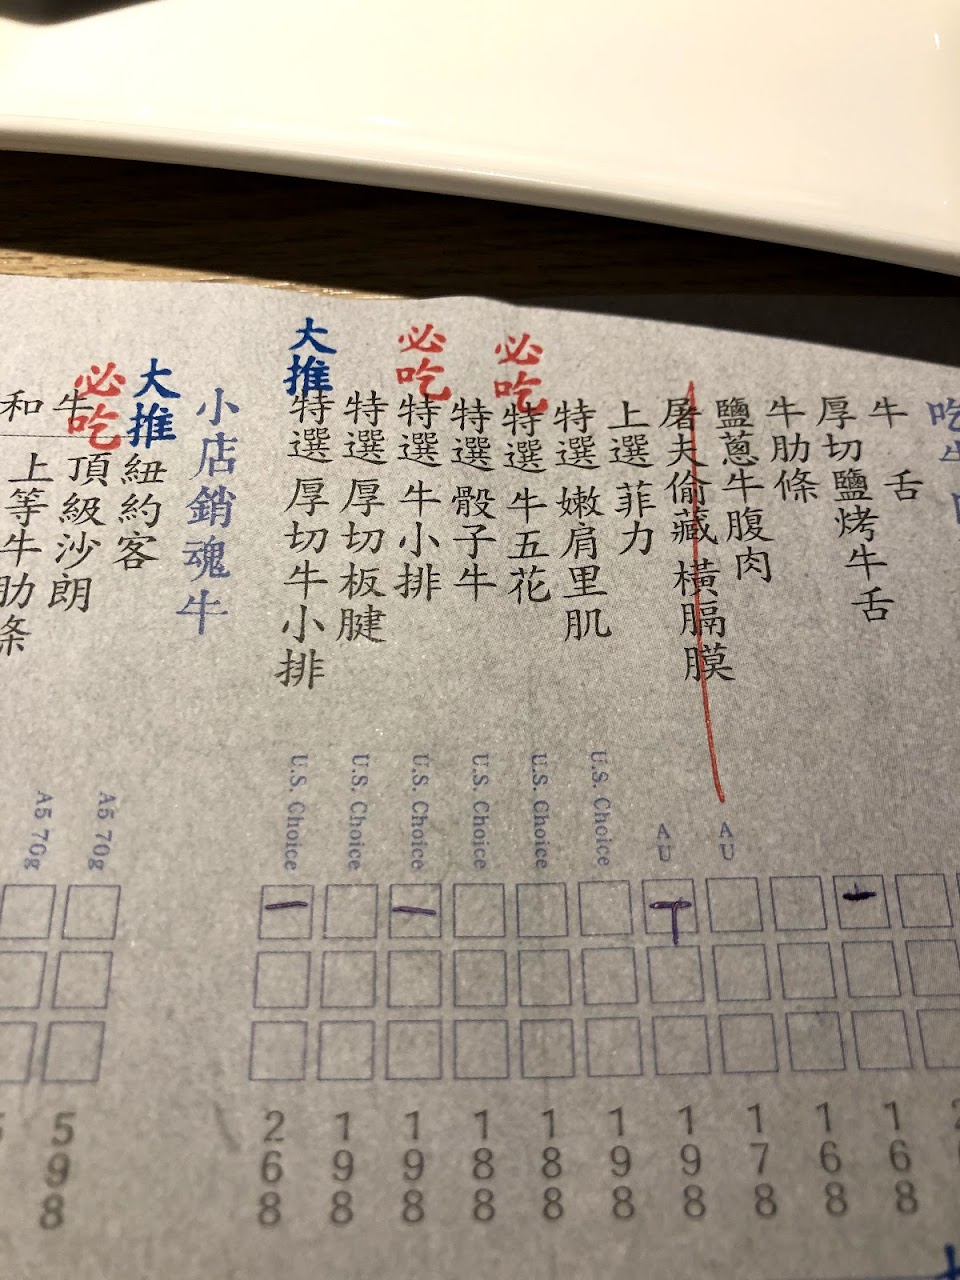 吃牛
牛舌
厚切鹽烤牛舌
牛肋條
鹽蔥牛腹肉
屠夫偷藏 橫膈膜
上選 菲力
特選 嫩肩里肌
必吃
特選 牛五花
特選 骰子牛
必吃
特選 牛小排
特選 厚切板腱
大推
特選 厚切牛小排
小店銷魂牛
大推
紐約客
必吃
和牛
頂級沙朗
上等牛肋條
AU
AU
U.S. Choice
U.S. Choice
U.S. Choice
U.S. Choice
U.S. Choice
U.S. Choice
A5 70g
A5 70g
168
168
178
198
198
188
188
198
198
268
598